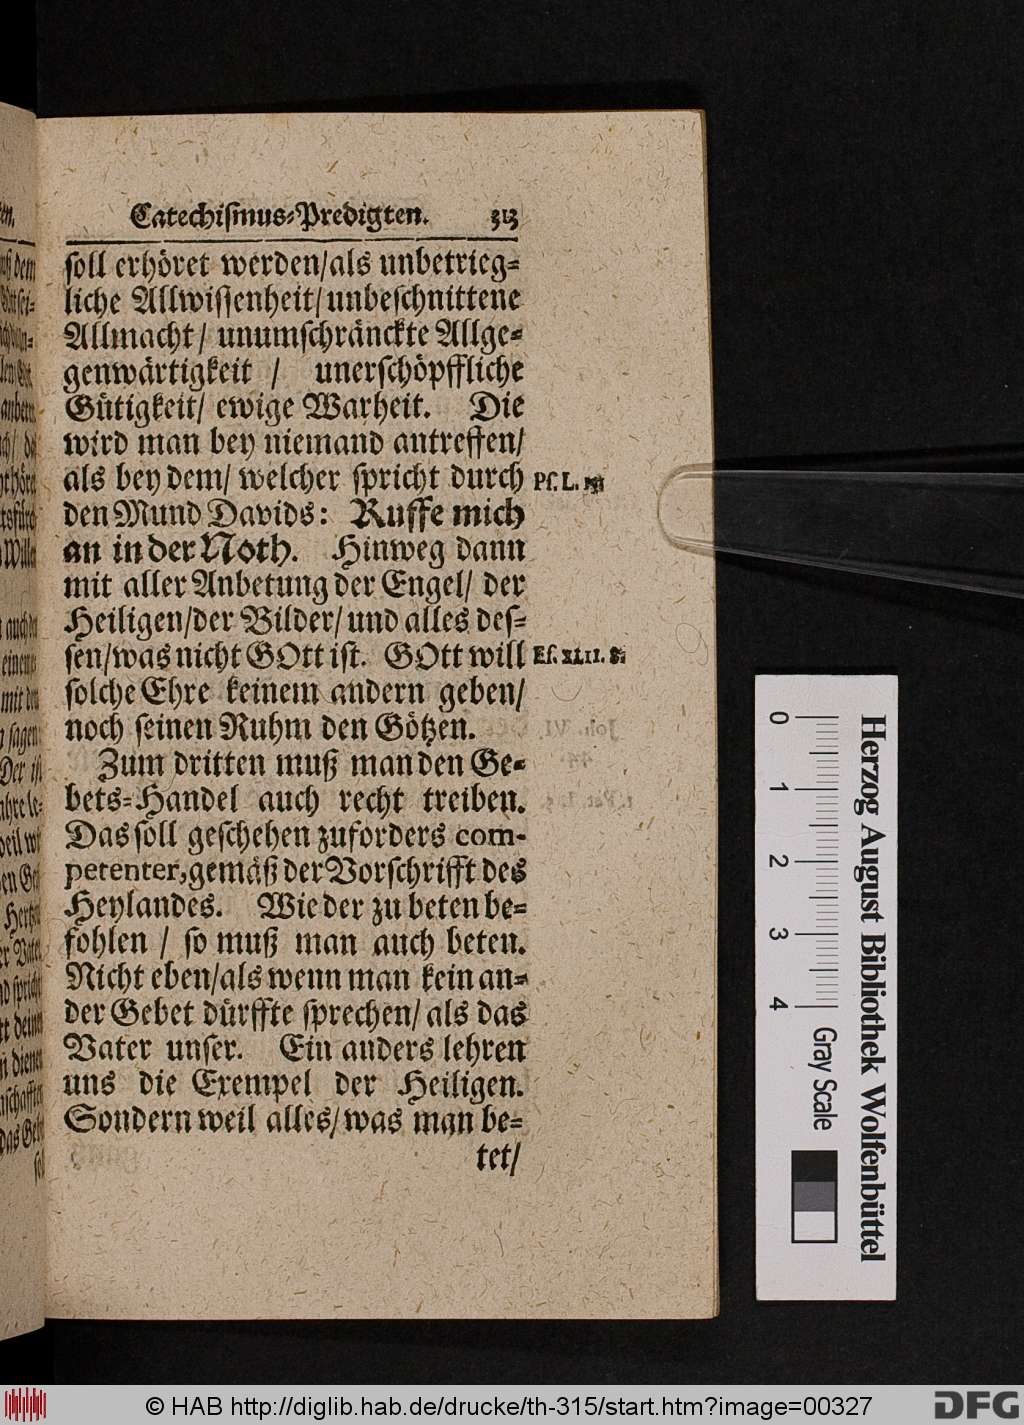 Catechiſmus-Predigten. 313
ſoll erhöret werden/als unbetrieg-
liche Allwiſſenheit/unbeſchnittene
Allmacht/ unumſchränckte Allge-
genwärtigkeit / unerſchöpffliche
Gütigkeit/ ewige Warheit. Die
wird man bey niemand antreffen/
als bey dem/ welcher ſpricht durch
Pſ. L.
den Mund Davids: Ruffe mich
an in der Noth. Hinweg dann
mit aller Anbetung der Engel/ der
Heiligen/der Bilder/ und alles deſ-
ſen/was nicht GOtt iſt. GOtt will
Eſ. XLII. 8.
ſolche Ehre keinem andern geben/
noch ſeinen Ruhm den Götzen.
Zum dritten muß man den Ge-
bets-Handel auch recht treiben.
Das ſoll geſchehen zuforders com-
petenter, gemäß der Vorſchrifft des
Heylandes. Wie der zu beten be-
fohlen / ſo muß man auch beten.
Nicht eben/als wenn man kein an-
der Gebet dürffte ſprechen/ als das
Vater unſer. Ein anders lehren
uns die Exempel der Heiligen.
Sondern weil alles/ was man be-
tet/
0 1 2 3 4
Gray Scale
Herzog August Bibliothek Wolfenbüttel
© HAB http://diglib.hab.de/drucke/th-315/start.htm?image=00327
DFG